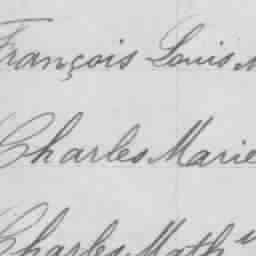 François Louis
Charles Marie
Charles Math